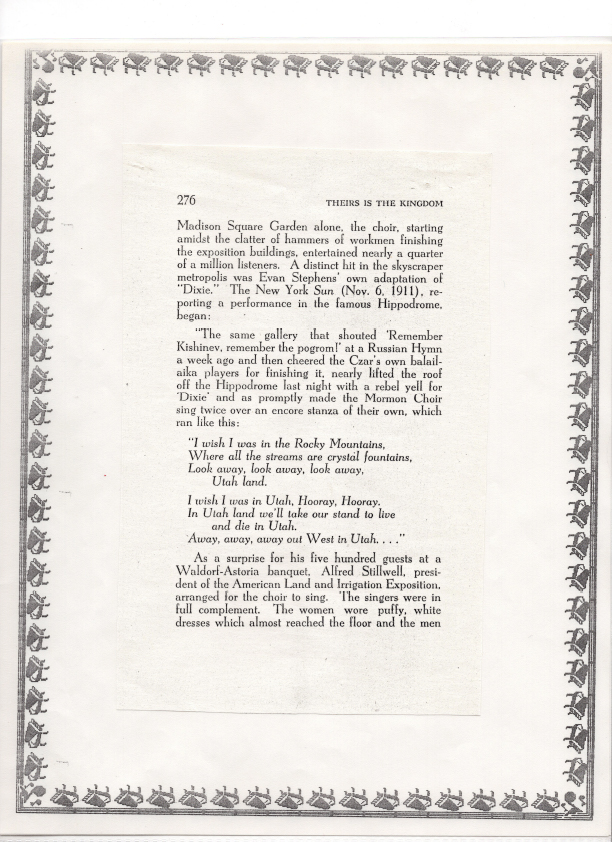 276 THEIRS IS THE KINGDOM
Madison Square Garden alone, the choir, starting
amidst the clatter of hammers of workmen finishing
the exposition buildings, entertained nearly a quarter
of a million listeners. A distinct hit in the skyscraper
metropolis was Evan Stephens' own adaptation of
"Dixie." The New York Sun (Nov. 6, 1911), re-
porting a performance in the famous Hippodrome,
began:
"The same gallery that shouted 'Remember
Kishinev, remember the pogrom!' at a Russian Hymn
a week ago and then cheered the Czar's own balail-
aika players for finishing it, nearly lifted the roof
off the Hippodrome last night with a rebel yell for
'Dixie' and as promptly made the Mormon Choir
sing twice over an encore stanza of their own, which
ran like this:
"I wish I was in the Rocky Mountains,
Where all the streams are crystal fountains,
Look away, look away, look away,
Utah land.
I wish I was in Utah, Hooray, Hooray.
In Utah land we'll take our stand to live
and die in Utah.
Away, away, away out West in Utah. . . ."
As a surprise for his five hundred guests at a
Waldorf-Astoria banquet, Alfred Stillwell, presi-
dent of the American Land and Irrigation Exposition,
arranged for the choir to sing. The singers were in
full complement. The women wore puffy, white
dresses which almost reached the floor and the men